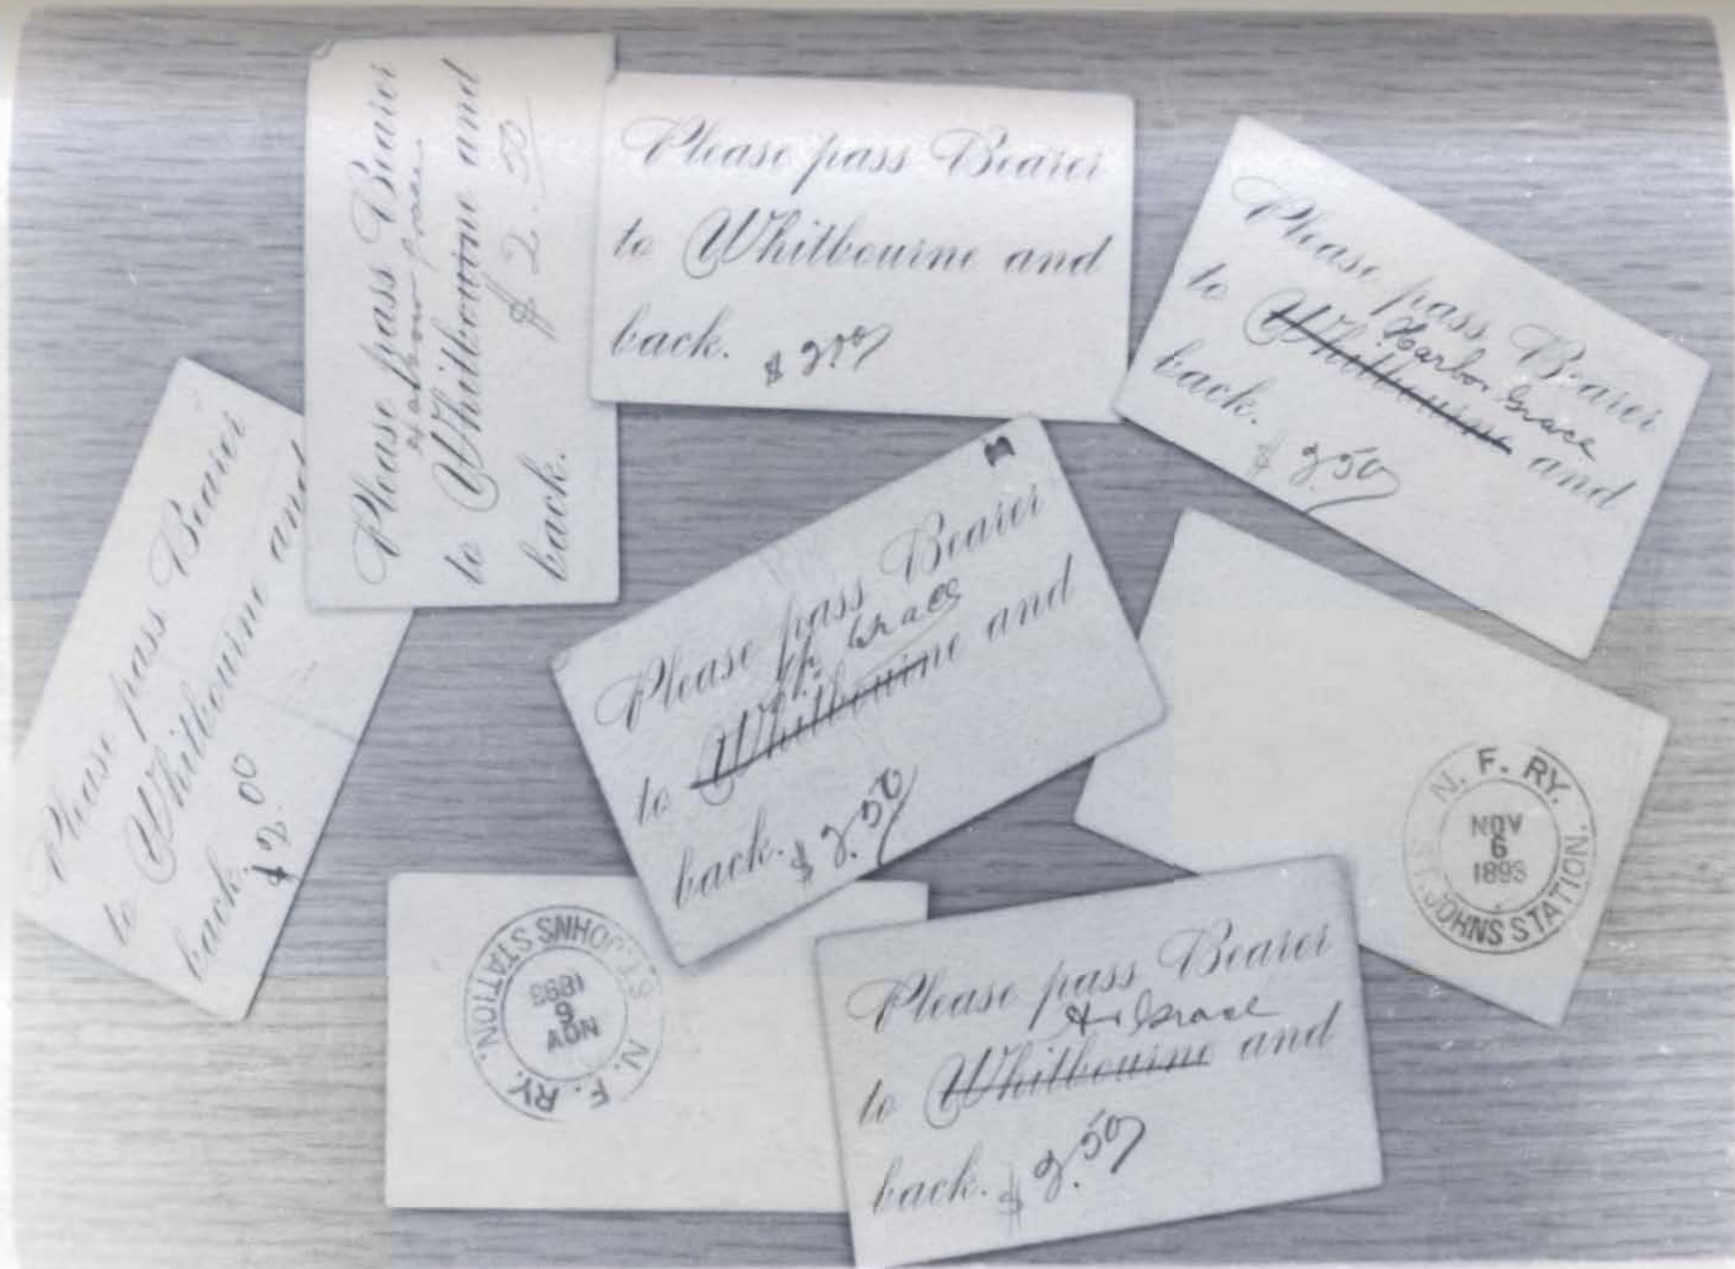 Please pass Bearer
Harbour Grace
to Whitbourne and
$2.50
back.
Please pass Bearer
to Whitbourne and
back. $2.00
Please pass Bearer
Harbor Grace
to Whitbourne and
back.
$2.50
Please pass Bearer
to Whitbourne and
back. $2.00
Please pass Bearer
Hr. Grace
to Whitbourne and
back. $2.50
N. F. RY.
NOV
6
1893
ST. JOHNS STATION.
N. F. RY.
NOV
6
1893
ST. JOHNS STATION.
Please pass Bearer
Hr Grace
to Whitbourne and
back. $2.50